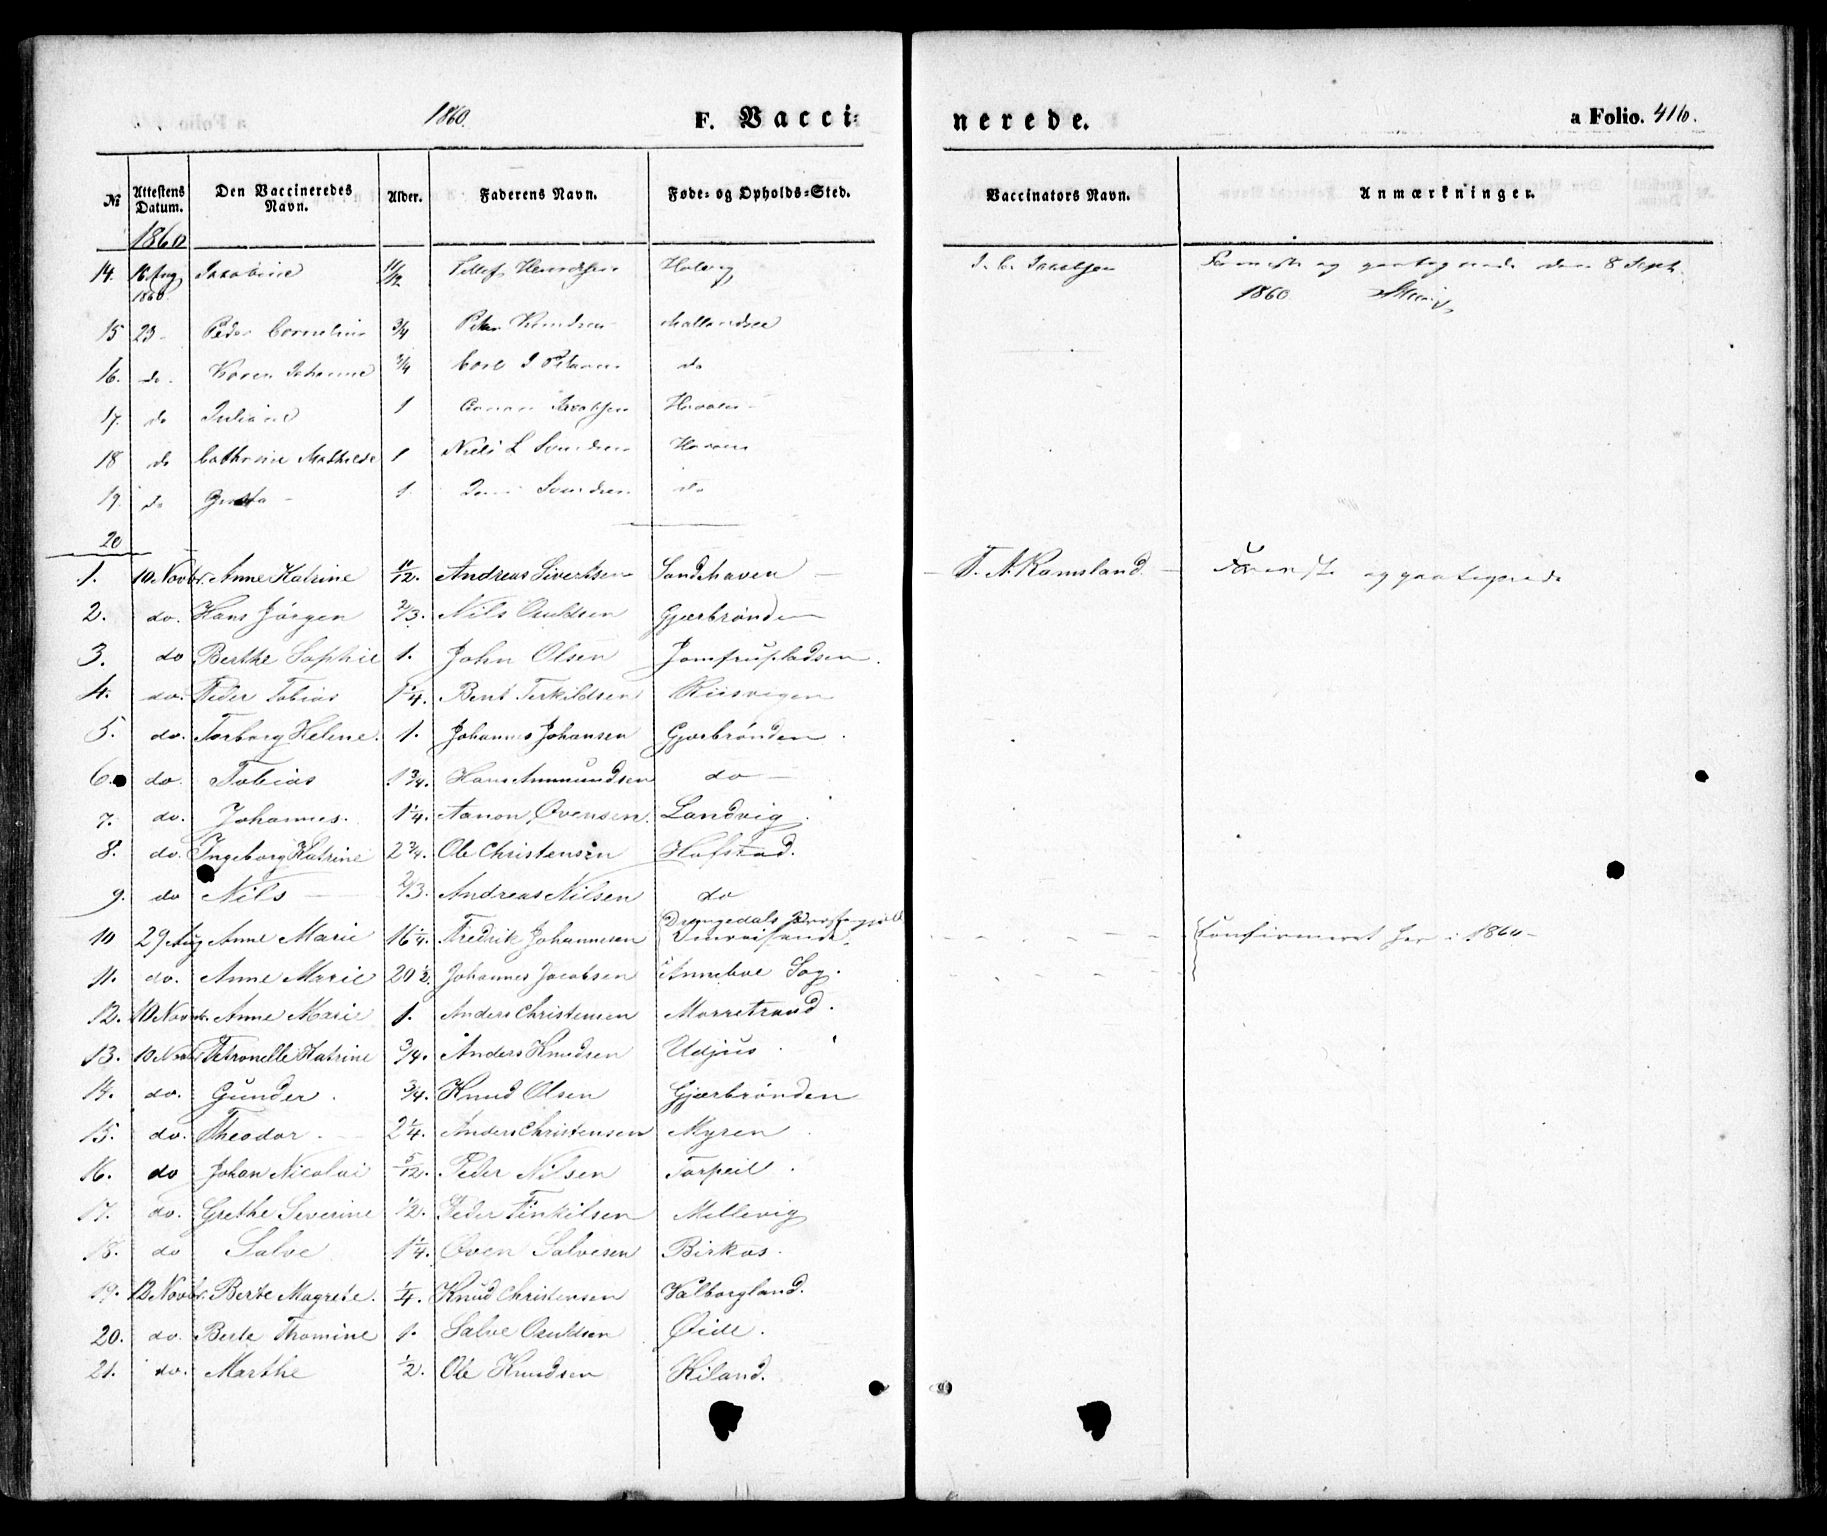 1860. F. Vacci-
nerede. a Folio. 416.
№ Attestens Datum. Den Vaccineredes Navn. Alder. Faderens Navn. Føde- og Opholds-Sted. Vaccinators Navn. Anmærkninger.
1860
14. 16 Aug 1860. Jacobine 11/12 Holvig og 8 Sept. 1860
15 23 Peder Cornelius 3/4 Knudsen
16. do. Karen Johanne 3/4 do
17. do Juliane 1
18 do Cathrine Mathilde 1 Niels L Svendsen
19. do 1. Svendsen do
20
1. 10 Novbr. Anne Katrine 11/12. Andreas Sivertsen Sandhaven T. A. Ramsland.
2. do. Hans Jørgen 2/3. Nils Osuldsen Gjærbrønden
3. do Berthe Sophie 1. John Olsen Jomfrupladsen.
4. do. Peder Tobias 1 1/4. Bent Terkildsen Riisvigen
5. do. Torborg Helene. 1. Johannes Johansen Gjærbrønden.
6. do. Tobias 1 3/4. Hans Ammundsen do
7. do. Johannes. 1 1/4. Aanon Ovensen. Landvig.
8. do. Ingeborg Katrine 2 3/4. Ole Christensen Hafstad.
9. do Nils 2/3. Andreas Nilsen do
10 29 Aug Anne Marie 16 1/4. Fredrik Johannesen Drangedals Confirmeret her i 1860
11. do. Anne Marie 20 1/2. Johannes Jacobsen Sog.
12. 10 Novbr. Anne Marie 1. Anders Christensen Morretrand.
13. 10 Novbr Petronelle Katrine 3/4. Anders Knudsen Udjus.
14. do. Gunder. 3/4. Knud Olsen Gjærbrønden
15. do. Theodor. 2 1/4. Anders Christensen Myren
16. do Johan Nicolai 5/12. Peder Nilsen Torpeil.
17. do. Grethe Severine 1/2. Peder Mellevig
18. do Salve 1 1/4. Oven Salvesen Birkas.
19. 12 Novbr. Berte Magrete. 1/4. Knud Christensen Valborgland.
20. do. Berte Thomine 1. Salve Osuldsen Øide.
21. do. Marthe 1/2. Ole Knudsen Kiland.